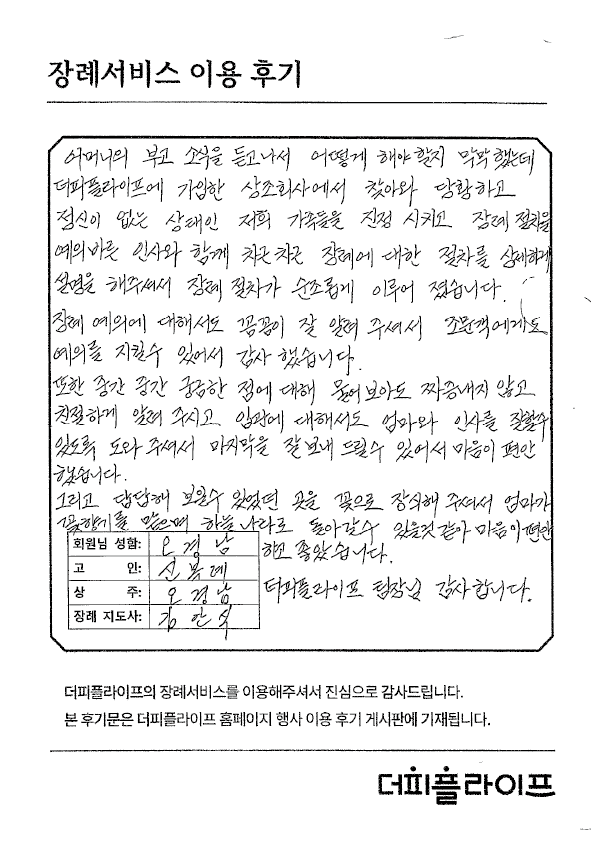 장례서비스 이용 후기
어머니의 부고 소식을 듣고나서 어떻게 해야 할지 막막했는데
더피플라이프에 가입한 상조회사에서 찾아와 당황하고
정신이 없는 상태인 저희 가족들을 진정 시키고 장례 절차을
예의바른 인사와 함께 차근차근 장례에 대한 절차를 상세하게
설명을 해주셔서 장례 절차가 순조롭게 이루어 졌습니다.
장례 예의에 대해서도 꼼꼼이 잘 알려 주셔서 조문객에게도
예의를 지킬수 있어서 감사 했습니다.
또한 중간 중간 궁금한 점에 대해 물어보아도 짜증내지 않고
친절하게 알려 주시고 입관에 대해서도 엄마와 인사를 잘할수
있도록 도와 주셔서 마지막을 잘 보내 드릴수 있어서 마음이 편안
했습니다.
그리고 답답해 보일수 있었던 곳을 꽃으로 장식해 주셔서 엄마가
꽃향기를 맡으며 하늘나라로 돌아갈수 있을것 같아 마음이 편안
하고 좋았습니다.
더피플라이프 팀장님 감사합니다.
회원님 성함: 오경남
고 인: 신복례
상 주: 오경남
장례 지도사: 김안식
더피플라이프의 장례서비스를 이용해주셔서 진심으로 감사드립니다.
본 후기문은 더피플라이프 홈페이지 행사 이용 후기 게시판에 기재됩니다.
더피플라이프